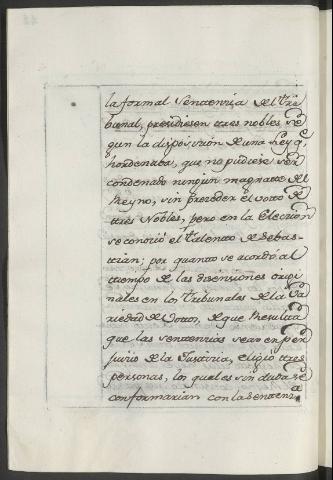 la formal Sentencia del tri
bunal, presidiesen tres nobles se
gun la disposizión de una Ley q.e
hordenaba, que no pudiese ser
condenado ningun magnate del
Reyno, sin prezeder el voto de
tres Nobles, pero en la Elección
se conozió el talento de Sebas-
tian; por quanto se acordó al
tiempo de las disensiones origi
nales en los tribunales de la Va
riedad de Votos, de que Resulta
que las sentencias sean en per
juizio de la Justizia, eligió tres
personas, los quales sin duda se
conformarian con la sentenzia